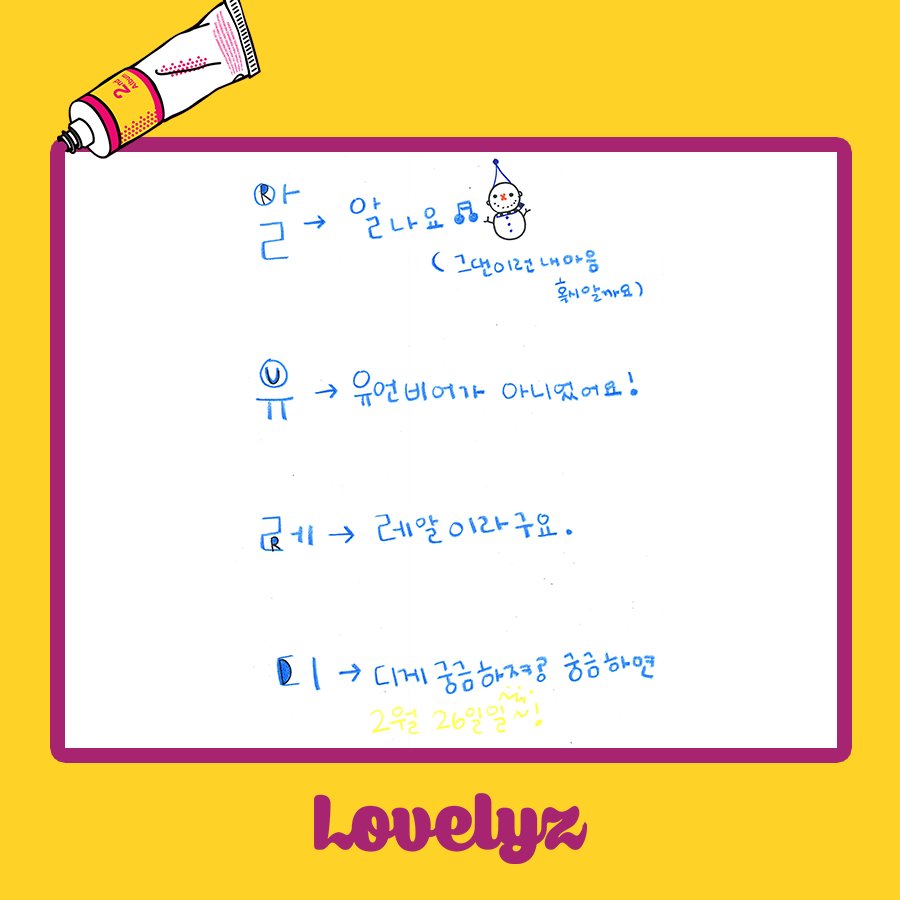 2nd
Album
알 → 알나요
(그댄 이런 내 마음
혹시 알까요)
유 → 유언비어가 아니었어요!
레 → 레알이라구요.
디 → 디게 궁금하져? 궁금하면
2월 26일일~~!
Lovelyz